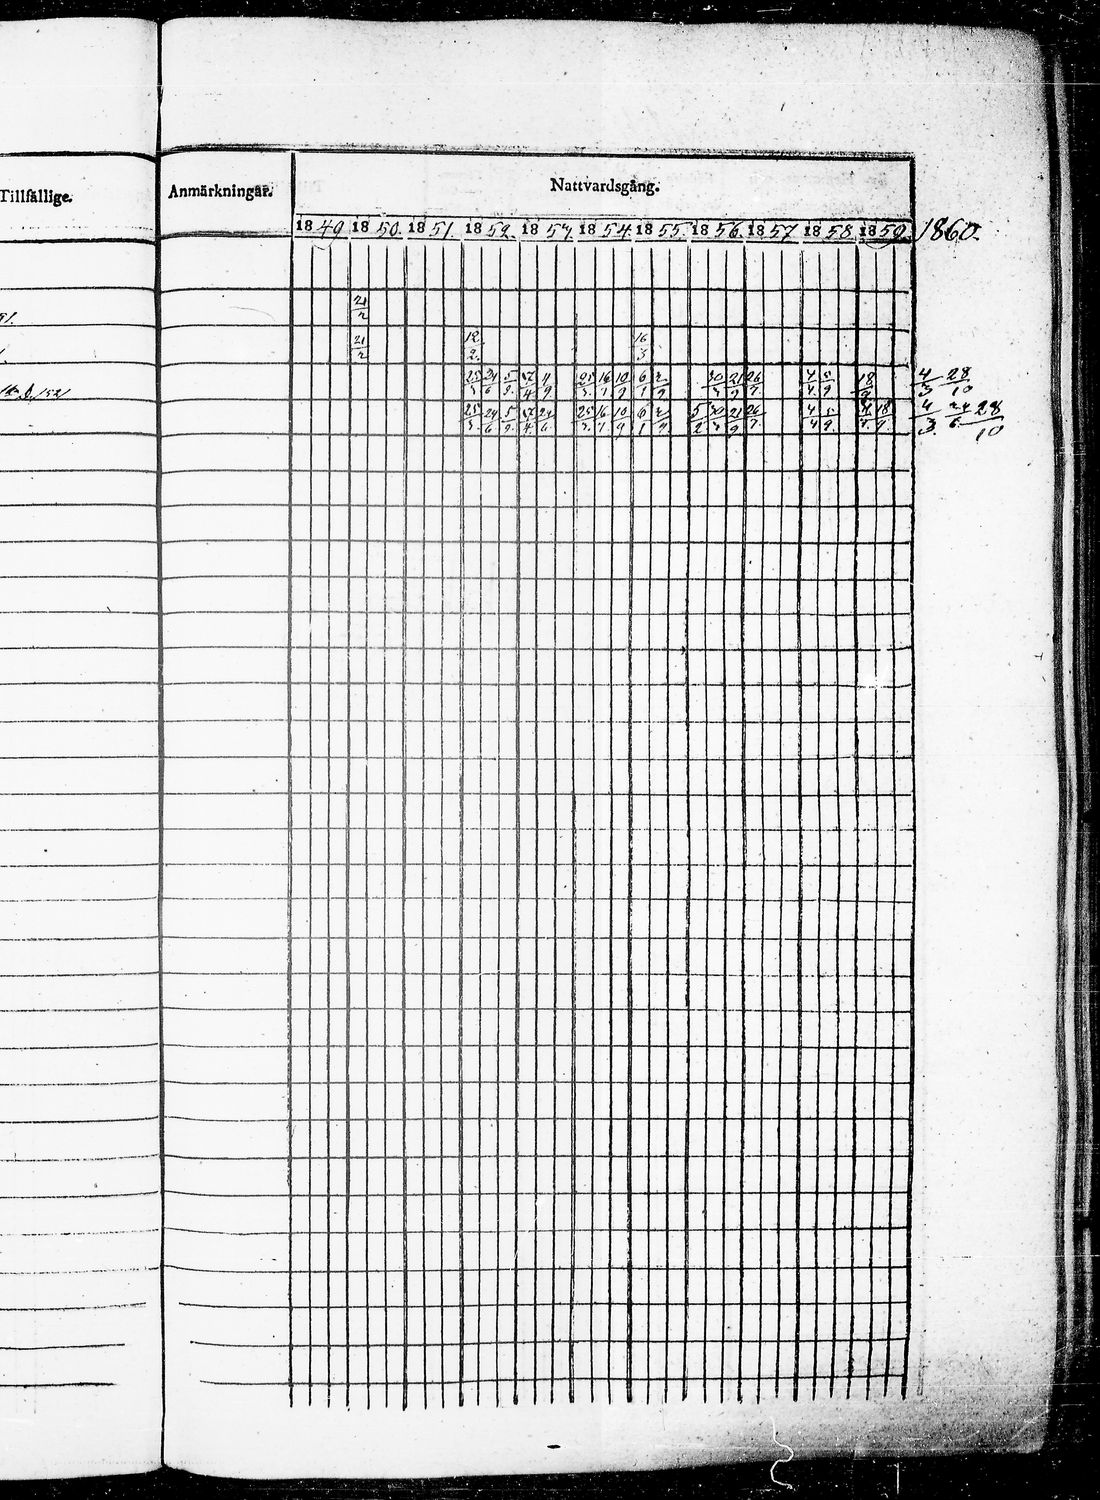 Tillfällige. Anmärkningar. Nattvardsgång.
1849 1850. 1851 1852. 1853. 1854 1855. 1856. 1857 1858 1859. 1860.
21/2
21/2 12/2. 16/3
25/3 24/6 5/9. 17/4. 11/9 25/3. 16/7 10/9 6/1 2/9 30/3 21/9 26/7. 4/4. 5/9. 18/9 4/3 28/10
25/3. 24/6 5/9. 17/4. 24/6. 25/3. 16/7 10/9 6/1 2/9 5/2 30/3 21/9 26/7. 4/4 5/9. 4/4. 18/9. 4/3. 24/6. 28/10